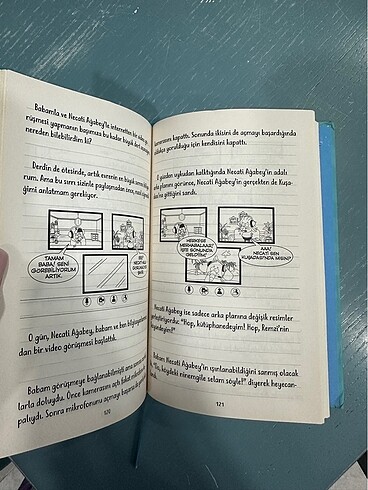 Babamla ve Necati Ağabey'le internetten bir
rüşmesi yapmanın başımıza bu kadar büyük dert
nereden bilebilirdim ki?
Derdin de ötesinde, artık evrenin en büyük sırrını
rum. Ama bu sırrı sizinle paylaşmadan önce, nasıl
ğimi anlatmam gerekiyor.
TAMAM
BABA! SENİ
GÖREBİLİYORUM
ARTIK.
O gün, Necati Ağabey, babam ve ben bilgisayar
dan bir video görüşmesi başlattık.
Babam görüşmeye bağlanabilmişti ama
larla doluydu. Önce kamerasını açtı fakat mikrofonu
palıydı. Sonra mikrofonunu açmayı başardı
120
kamerasını kapattı. Sonunda ikisini de açmayı başardığında
yorulduğu için kendisini kapattı.
uykudan kalktığında Necati Ağabey'in adalı
arka planını görünce, Necati Ağabey'in gerçekten de Kuşa-
gittiğini sandı.
HERKESE
MERHABALAAR!
İŞTE SONUNDA
GELDİM!
AAA!
NECATİ SEN
KUŞADASI'NDA MISIN?
Necati Ağabey ise sadece arka planına değişik resimler
"Hop, kütüphanedeyim! Hop, Remzi'nin
Babam Necati Ağabey'in ışınlanabildiğini sanmış olacak
köydeki ninemgile selam söyle!" diyerek heyecan-
121